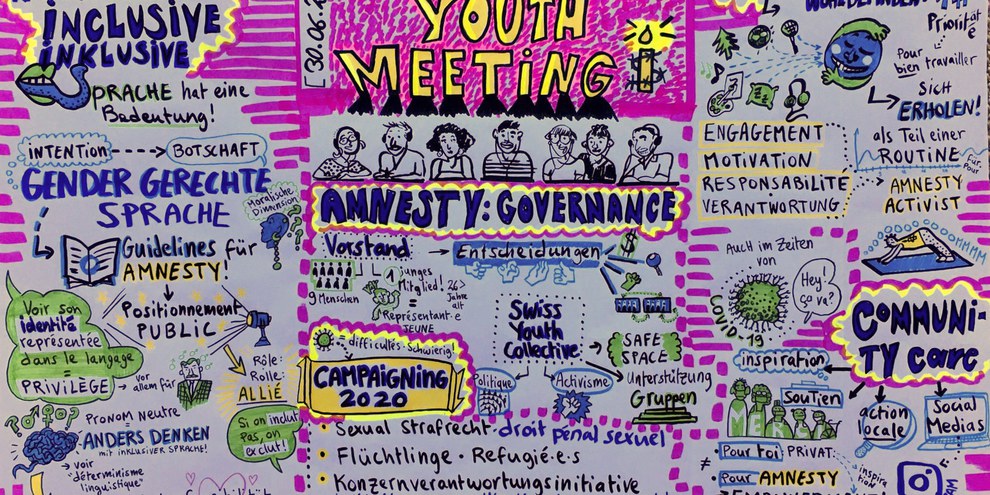 INCLUSIVE
INKLUSIVE
SPRACHE hat eine
Bedeutung!
INTENTION
BOTSCHAFT
GENDER GERECHTE
SPRACHE
Moralische
Dimension
Guidelines für
AMNESTY!
Positionnement
PUBLIC
Voir son
identité
représentée
dans le langage
=
PRIVILÈGE
vor
allem für
Rôle:
Rolle:
ALLIÉ
PRONOM NEUTRE
ANDERS DENKEN
MIT INKLUSIVER SPRACHE!
voir
"déterminisme
linguistique"
Si on inclut
pas, on
exclut!
[30.06.2
YOUTH
MEETING
AMNESTY: GOVERNANCE
Vorstand
Entscheidungen
9 Menschen
1 junges
Mitglied!
26>
Jahre
alt
Représentant·e
JEUNE
= difficultés · Schwierig!
CAMPAIGNING
2020
Swiss
Youth
Collective
Politique
Activisme
SAFE
SPACE
Unterstützung
Gruppen
Sexual Strafrecht · droit pénal sexuel
Flüchtlinge · Refugié·e·s
Konzernverantwortungsinitiative
WOHLBEFINDEN
Priorität
é
Pour
bien travailler
Sich
ERHOLEN!
als Teil einer
ROUTINE
ENGAGEMENT
MOTIVATION
RESPONSABILITE
VERANTWORTUNG
AMNESTY
ACTIVIST
MMMM
Auch im Zeiten
von
COVID-19
Hey!
Ça va?
COMMUNI-
TY care
inspiration
Soutien
action
locale
Social
Medias
Pour toi PRIVAT:
≠
Pour AMNESTY
inspira
tion